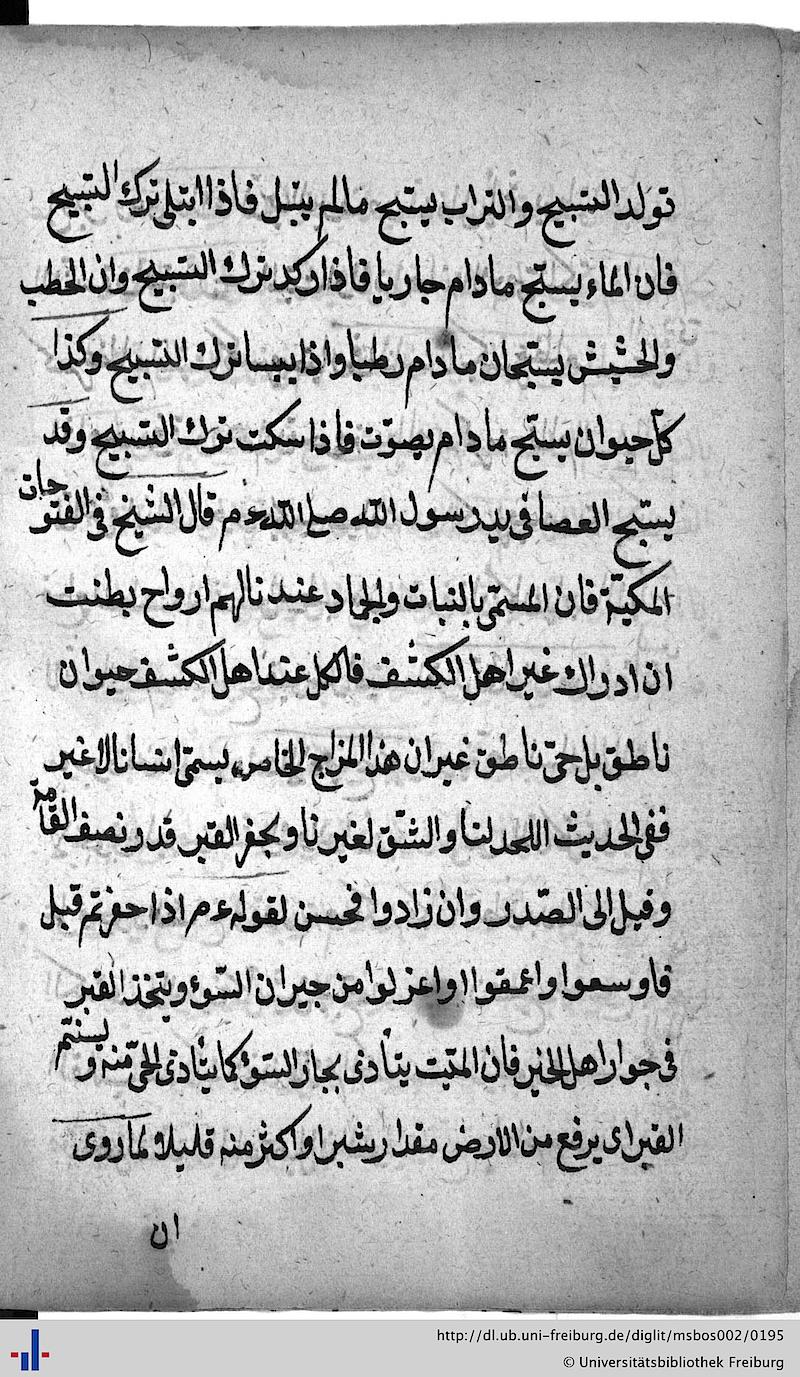 تولد التسبيح والتراب يسبح مالم يبتل فاذا ابتلى ترك التسبيح
فان الماء يسبح مادام جاريا فاذا ركد ترك التسبيح وان الحطب
والحشيش يسبحان مادام رطبا واذا يبسا ترك التسبيح وكذا
كل حيوان يسبح مادام يصوّت فاذا سكت ترك التسبيح وقد
يسبح العصا فى يد رسول الله صلى الله ءم قال الشيخ فى الفتوحات
المكيّة فان المسمّى بالنبات والجماد عندنا لهم ارواح بطنت
ان ادراك غير اهل الكشف فالكل عند اهل الكشف حيوان
ناطق بل حىّ ناطق غير ان هذا المزاج الخاص يسمّى انسانا لا غير
ففى الحديث اللحد لنا والشّق لغيرنا ويحفر القبر قدر نصف القامة
وقيل الى الصّدر وان زادوا فحسن لقوله ءم اذا حفرتم قبل
فاوسعوا واعمقوا واعزلوا من جيران السّوء ويتخذ القبر
فى جوار اهل الخير فان الميّت يتأذى بجار السّوء كما يتأذى الحىّ منه ويسنّم
القبر اى يرفع من الارض مقدار شبر او اكثر منه قليلا لما روى
ان
http://dl.ub.uni-freiburg.de/diglit/msbos002/0195
© Universitätsbibliothek Freiburg